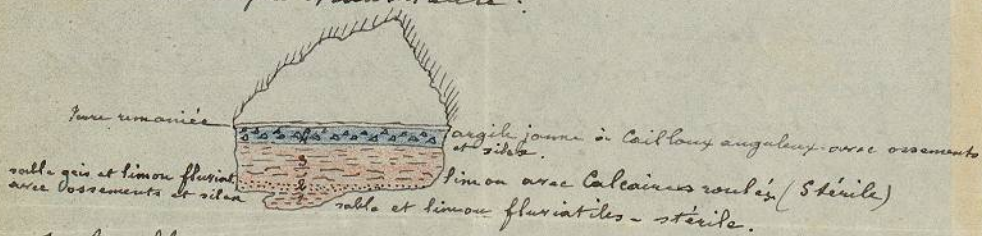 Terre remaniée
argile jaune à Cailloux anguleux avec ossements
et silex.
4
3
2
1
sable gris et limon fluviat.
avec ossements et silex
limon avec Calcaires roulés (Stérile)
sable et limon fluviatiles - stérile.